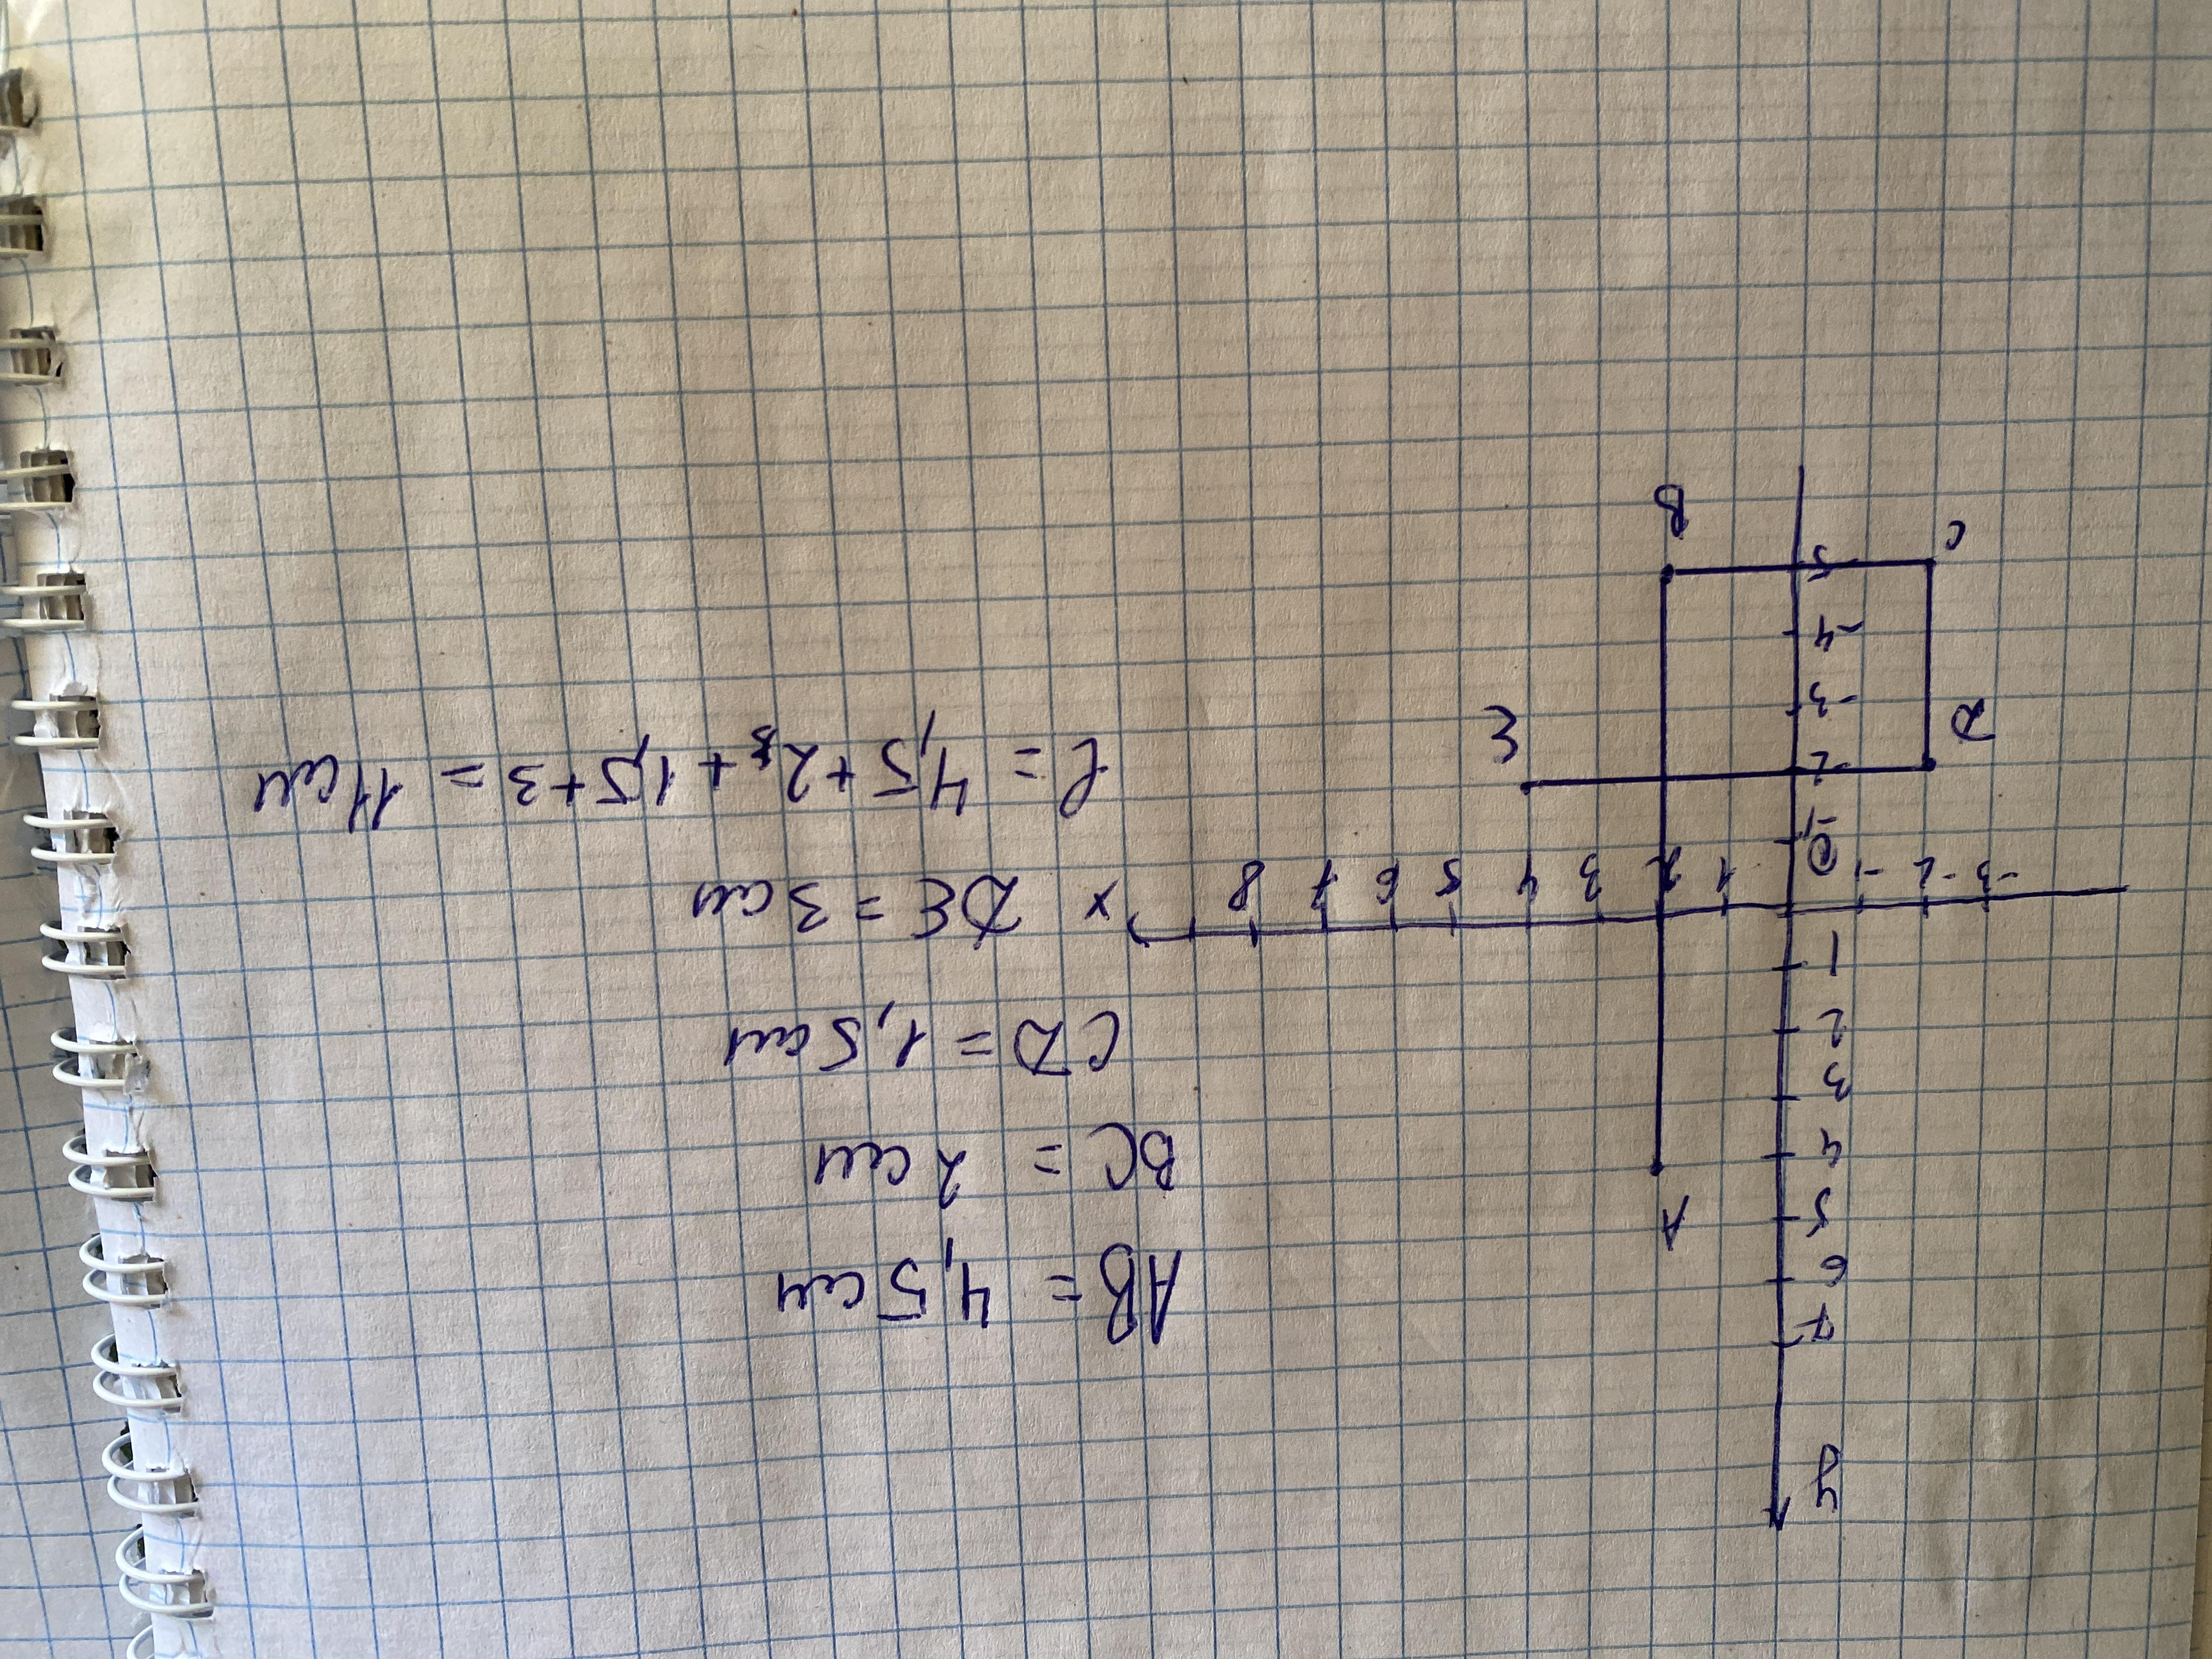 y
7
6
AB = 4,5 см
5 A
4
BC = 2 см
3
2
CD = 1,5 см
1
-3 -2 -1 0 1 2 3 4 5 6 7 8 x DE = 3 см
-1
-2
l = 4,5 + 2 + 1,5 + 3 = 11 см
D E
-3
-4
-5
C B